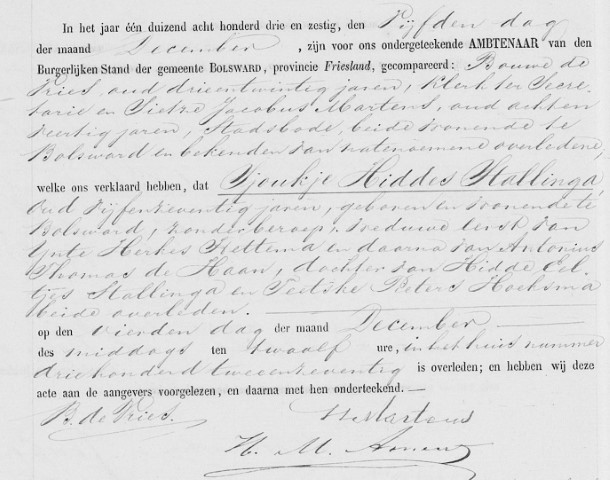 In het jaar één duizend acht honderd drie en zestig, den Vijfden dag
der maand December, zijn voor ons ondergeteekende AMBTENAAR van den
Burgerlijken Stand der gemeente BOLSWARD, provincie Friesland, gecompareerd: Bouwe de
Vries, oud drieentwintig jaren, klerk ter Secre-
tarie en Sietze Jacobus Martens, oud achten
veertig jaren, Stadsbode, beide wonende te
Bolsward en bekenden van natenoemene overledene,
welke ons verklaard hebben, dat Tjoukje Hiddes Stallinga,
oud vijfenzeventig jaren, geboren en wonende te
Bolsward, zonder beroep, weduwe eerst van
Ynte Herkes Hettema en daarna van Antonius
Thomas de Haan, dochter van Hidde Eel-
tjes Stallinga en Teetske Pieters Hoeksma
beide overleden.
op den vierden dag der maand December
des middags ten twaalf ure, in het huis nummer
driehonderd tweeenzeventig is overleden; en hebben wij deze
acte aan de aangevers voorgelezen, en daarna met hen onderteekend.—
B. de Vries. Martens
H. M.